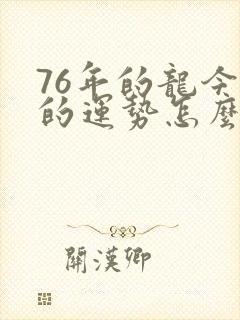 76年的龍今
的運勢怎麼
關漢卿